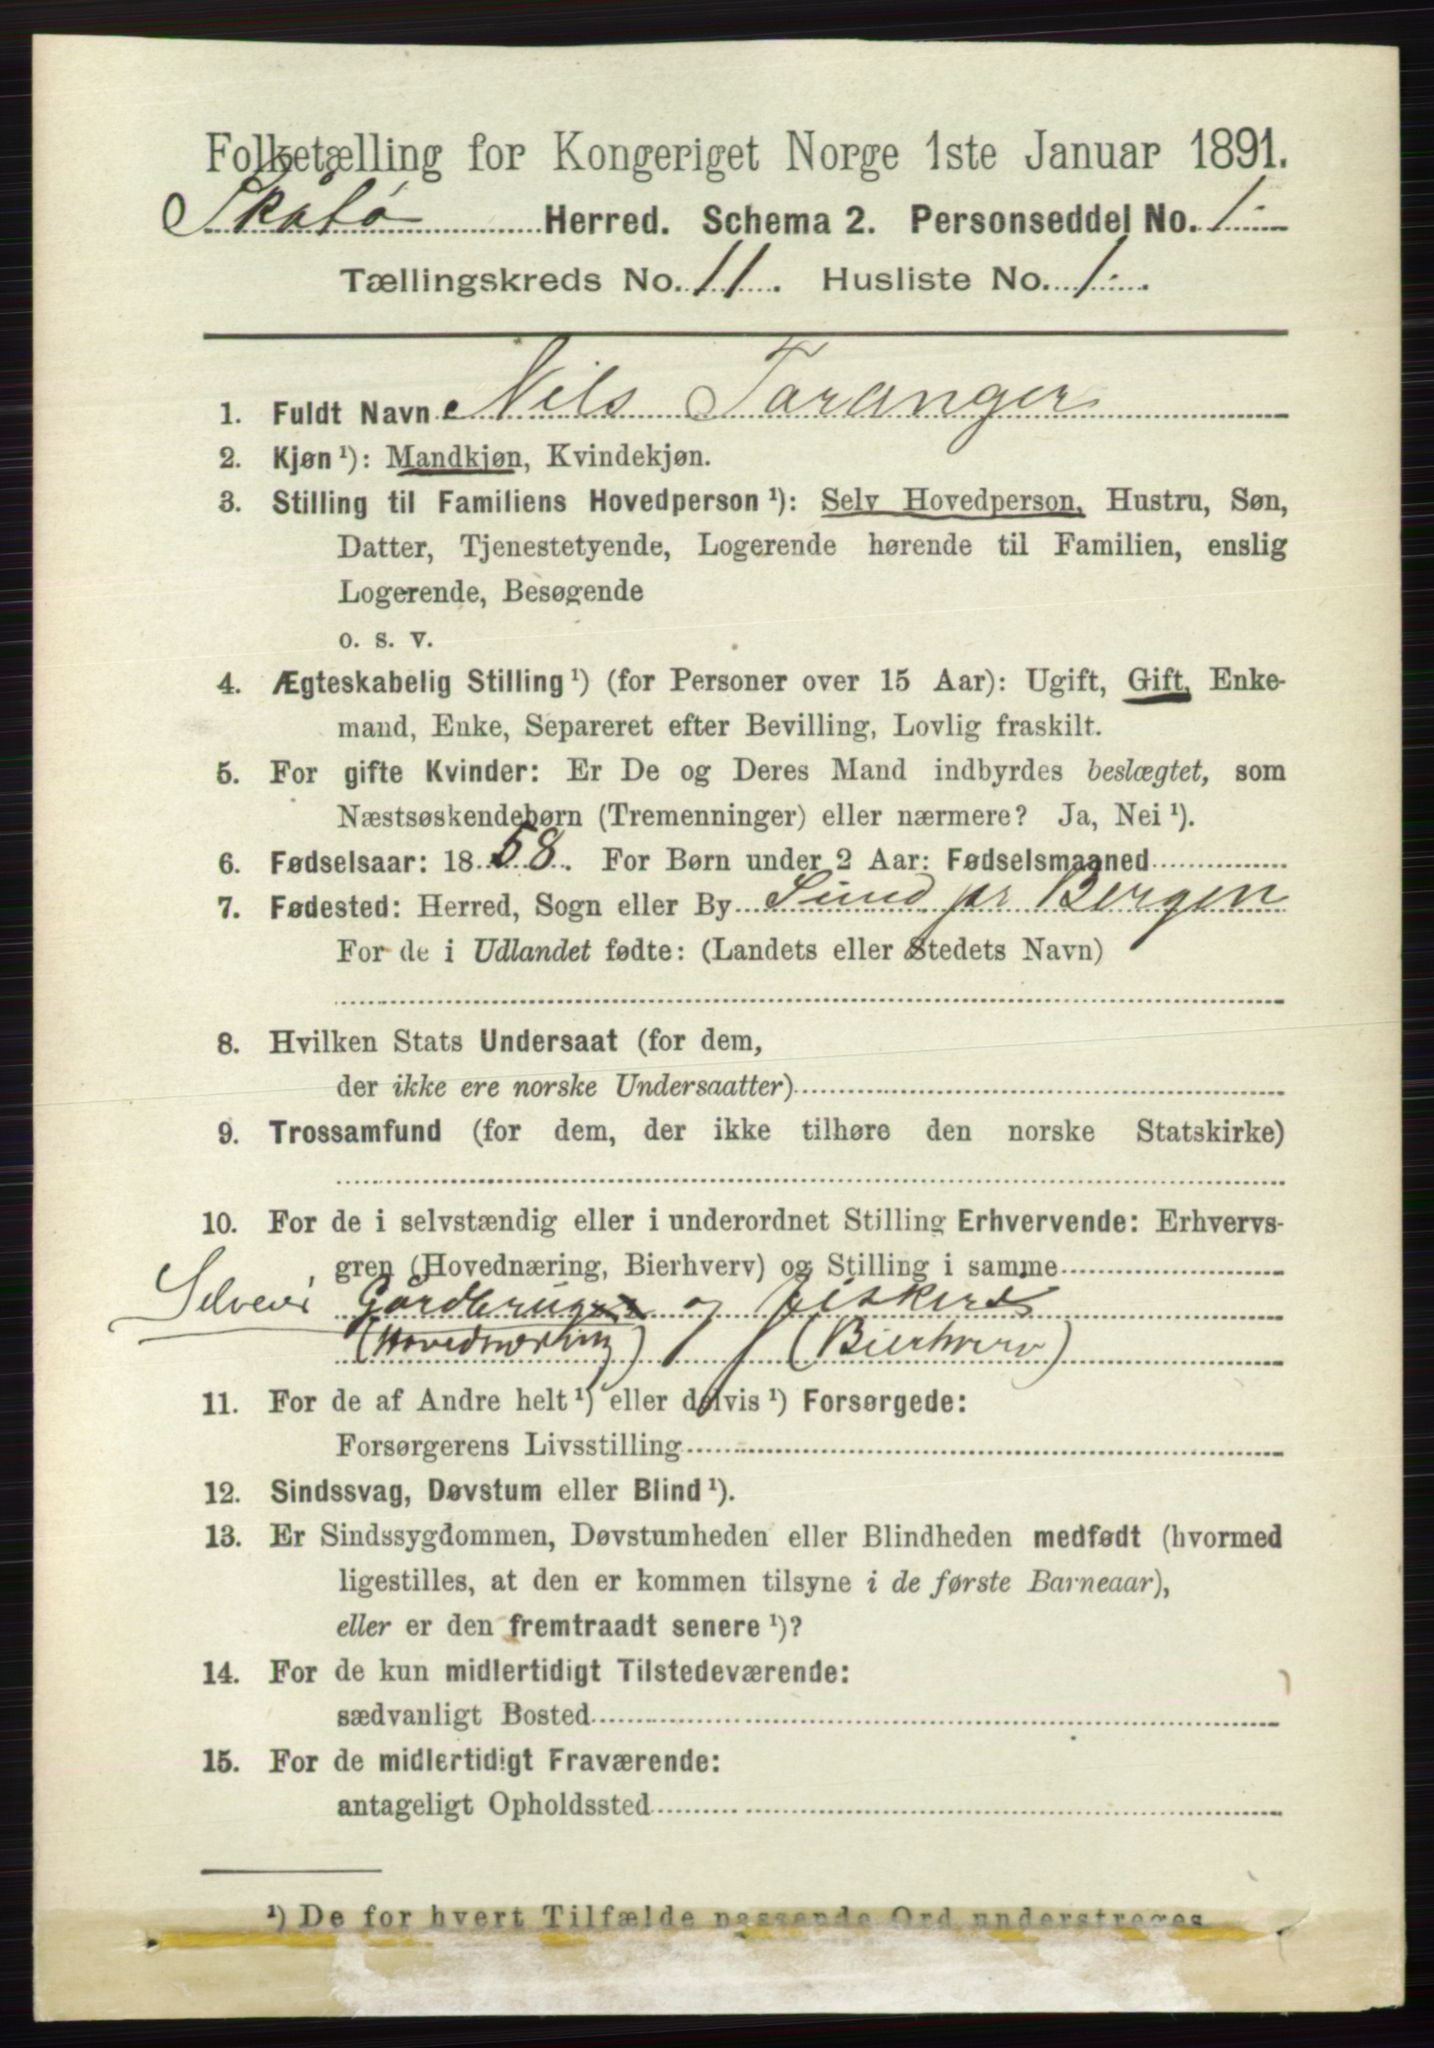 Folketælling for Kongeriget Norge 1ste Januar 1891.
Skåtø Herred. Schema 2. Personseddel No. 1.
Tællingskreds No. 11. Husliste No. 1.
1. Fuldt Navn Nils Taranger
2. Kjøn ¹): Mandkjøn, Kvindekjøn.
3. Stilling til Familiens Hovedperson ¹): Selv Hovedperson, Hustru, Søn,
Datter, Tjenestetyende, Logerende hørende til Familien, enslig
Logerende, Besøgende
o. s. v.
4. Ægteskabelig Stilling ¹) (for Personer over 15 Aar): Ugift, Gift, Enke-
mand, Enke, Separeret efter Bevilling, Lovlig fraskilt.
5. For gifte Kvinder: Er De og Deres Mand indbyrdes beslægtet, som
Næstsøskendebørn (Tremenninger) eller nærmere? Ja, Nei ¹).
6. Fødselsaar: 1858. For Børn under 2 Aar: Fødselsmaaned
7. Fødested: Herred, Sogn eller By Sund pr Bergen
For de i Udlandet fødte: (Landets eller Stedets Navn)
8. Hvilken Stats Undersaat (for dem,
der ikke ere norske Undersaatter)
9. Trossamfund (for dem, der ikke tilhøre den norske Statskirke)
10. For de i selvstændig eller i underordnet Stilling Erhvervende: Erhvervs-
gren (Hovednæring, Bierhverv) og Stilling i samme
Selveier Gårdbruger og fisker
(Hovednæring) (Bierhverv)
11. For de af Andre helt ¹) eller delvis ¹) Forsørgede:
Forsørgerens Livsstilling
12. Sindssvag, Døvstum eller Blind ¹).
13. Er Sindssygdommen, Døvstumheden eller Blindheden medfødt (hvormed
ligestilles, at den er kommen tilsyne i de første Barneaar),
eller er den fremtraadt senere ¹)?
14. For de kun midlertidigt Tilstedeværende:
sædvanligt Bosted
15. For de midlertidigt Fraværende:
antageligt Opholdssted
¹) De for hvert Tilfælde passende Ord understreges.